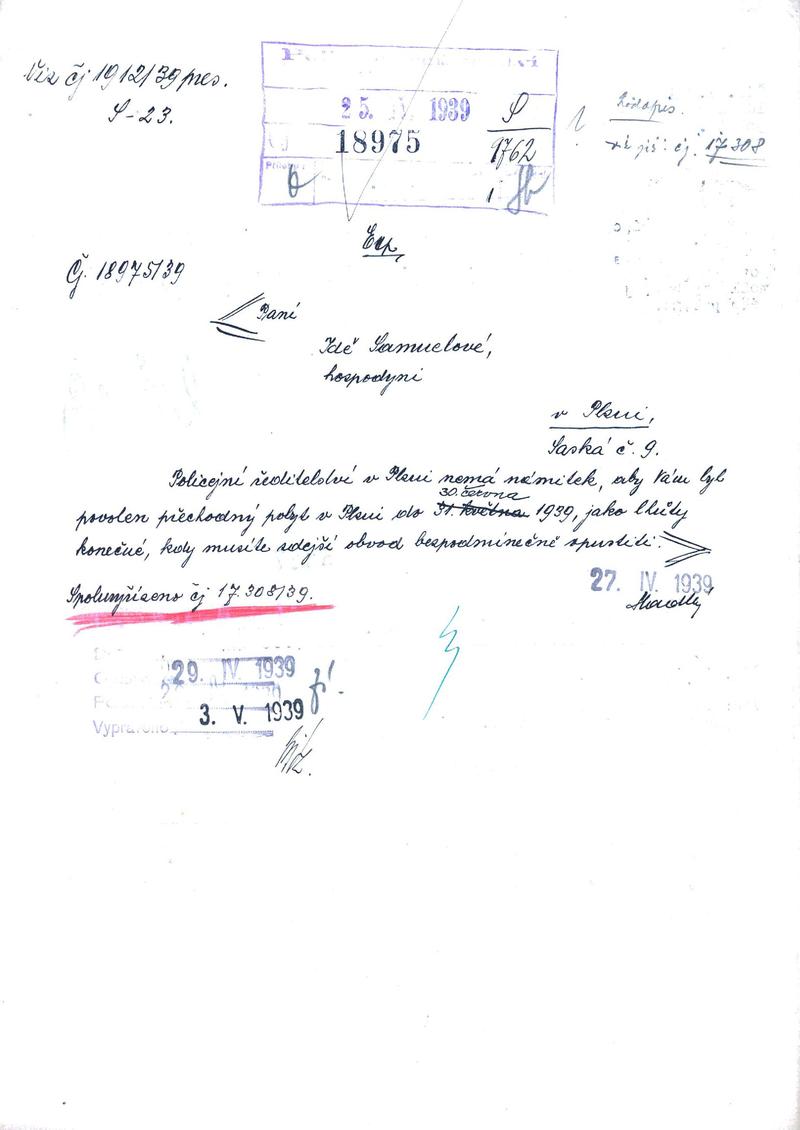 Viz čj 1912/39 pres.
S-23.
25. IV. 1939
18975
S
9762
1
čj. 17308
Exp.
Čj. 18975/39
Paní
Idě Samuelové,
hospodyni
v Plzni,
Saská č. 9.
Policejní ředitelství v Plzni nemá námitek, aby Vám byl
30. června
povolen přechodný pobyt v Plzni do 31. května 1939, jako lhůty
konečné, kdy musíte zdejší obvod bezpodmínečně opustiti.
27. IV. 1939
Spoluvyřízeno čj 17.308/39.
29. IV. 1939
3. V. 1939